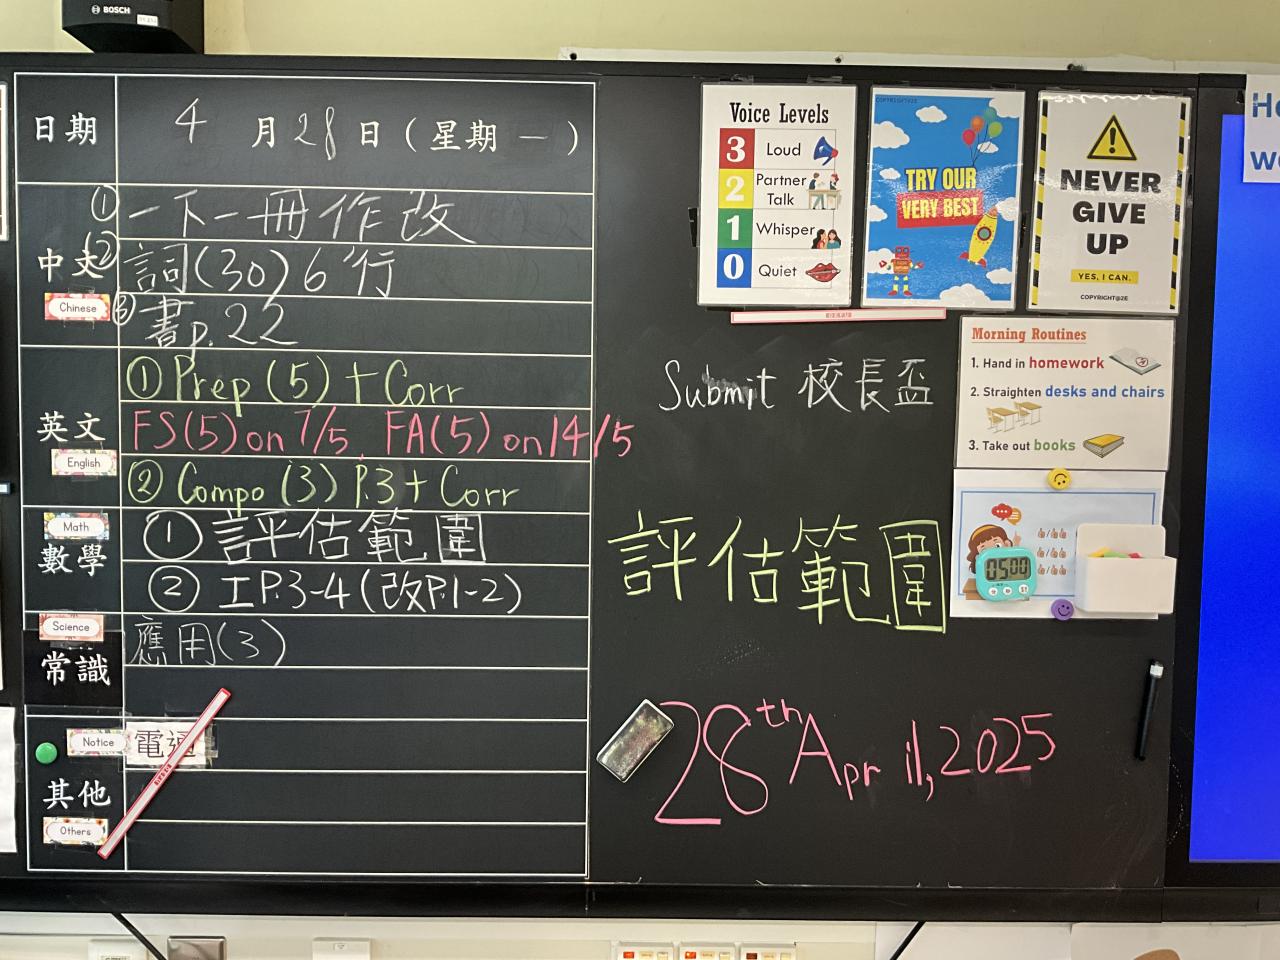 BOSCH
日期 4月28日(星期一)
中文
Chinese
① 一下一冊作改
② 詞(30)6行
③ 書p.22
英文
English
① Prep (5) + Corr
FS(5) on 7/5, FA(5) on 14/5
② Compo (3) P.3 + Corr
Math
數學
① 評估範圍
② 工P.3-4(改P.1-2)
Science
常識
應用(3)
Notice
電通
其他
Others
Voice Levels
3 Loud
2 Partner Talk
1 Whisper
0 Quiet
COPYRIGHT@2E
TRY OUR
VERY BEST
NEVER
GIVE
UP
YES, I CAN.
COPYRIGHT@2E
Submit 校長盃
Morning Routines
1. Hand in homework
2. Straighten desks and chairs
3. Take out books
05:00
評估範圍
28th April, 2025